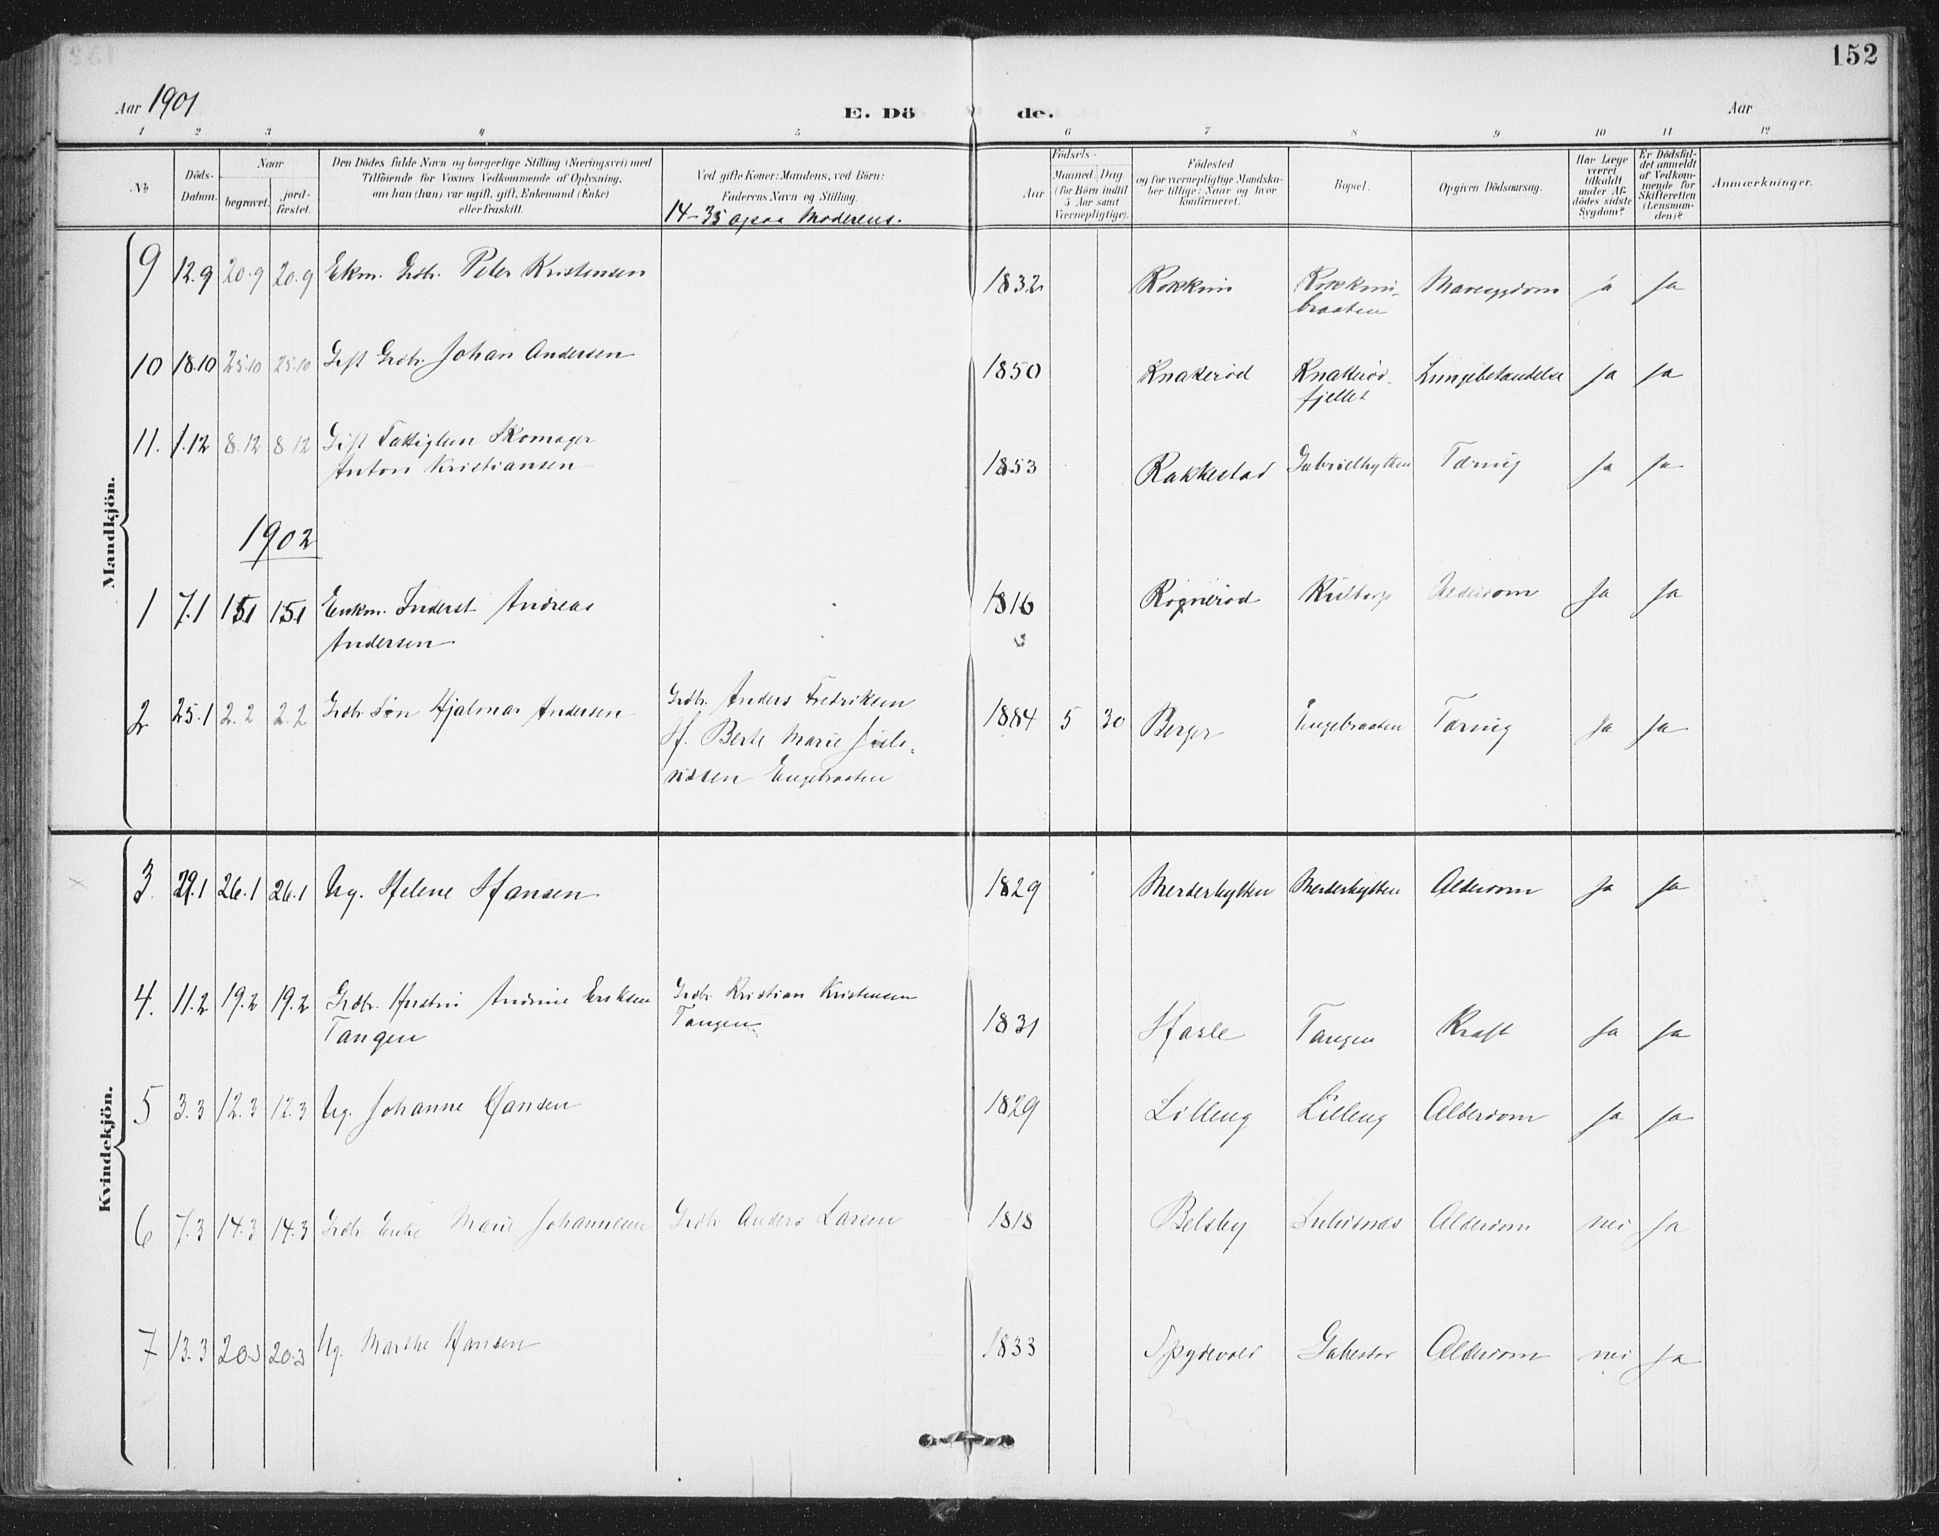 152
Aar 1901
E. Dö de.
Aar
1 2 3 4 5 6 7 8 9 10 11 12
No
Döds-Datum.
Naar
begravet.
jord-fæstet.
Den Dödes fulde Navn og borgerlige Stilling (Næringsvei) med
Tilföiende for Voxnes Vedkommende af Oplysning,
om han (hun) var ugift, gift, Enkemand (Enke)
eller fraskilt.
Ved gifte Koner: Mandens, ved Börn:
Faderens Navn og Stilling.
14-35 ogsaa Moderens.
Födsels-
Aar
Maaned. Dag
(for Börn indtil
5 Aar samt
Værnepligtige).
Födested
og for værnepligtige Mandsku-
ber tillige: Naar og hvor
konfirmeret.
Bopæl.
Opgiven Dödsaarsag.
Har Læge
været
tilkaldt
under Af-
dödes sidste
Sygdom?
Er Dödsfal-
det anmeldt
af Vedkom-
mende for
Skifteretten
(Lensman-
den)?
Anmærkninger.
Mandkjön.
9 12.9 20.9 20.9 Ekm. Grdbr. Peter Kristensen 1832 Rokkim Rokkim- Mavesygdom ja ja
braaten
10 18.10 25.10 25.10 Gift Grdbr. Johan Andersen 1850 Knakerød Knakerød- Lungebetændelse ja ja
fjellet
11. 1.12 8.12 8.12 Gift Fattiglem Skomager
Anton Kristiansen 1853 Rakkestad Gabrielhytten Tæring ja ja
1902
1 7.1 15.1 15.1 Enkm. Inderst Andreas 1816 Rognerød Alderdom ja ja
Andersen
2 25.1 2.2 2.2 Grdbr. Søn Hjalmar Andersen Grdbr. Anders Fredriksen 1884 5 30 Berger Engebraaten Tæring ja ja
Hf. Berte Marie
Engebraaten
Kvindekjön.
3 29.1 26.1 26.1 Ug. Helene Hansen 1829 Merderhytten Merderhytten Alderdom ja ja
4. 11.2 19.2 19.2 Grdbr. Hustru Andrine Eriksen Grdbr. Kristian Kristensen 1831 Hasle Tangen Kræft ja ja
Tangen Tangen
5 3.3 12.3 12.3 Ug. Johanne Hansen 1829 Lilleng Lilleng Alderdom ja ja
6 7.3 14.3 14.3 Grdbr. Enke Marie Johannesen Grdbr. Anders Larsen 1818 Belsby Alderdom nei ja
7 13.3 20.3 20.3 Ug. Marthe Hansen 1833 Spydevold Gabestad Alderdom nei ja